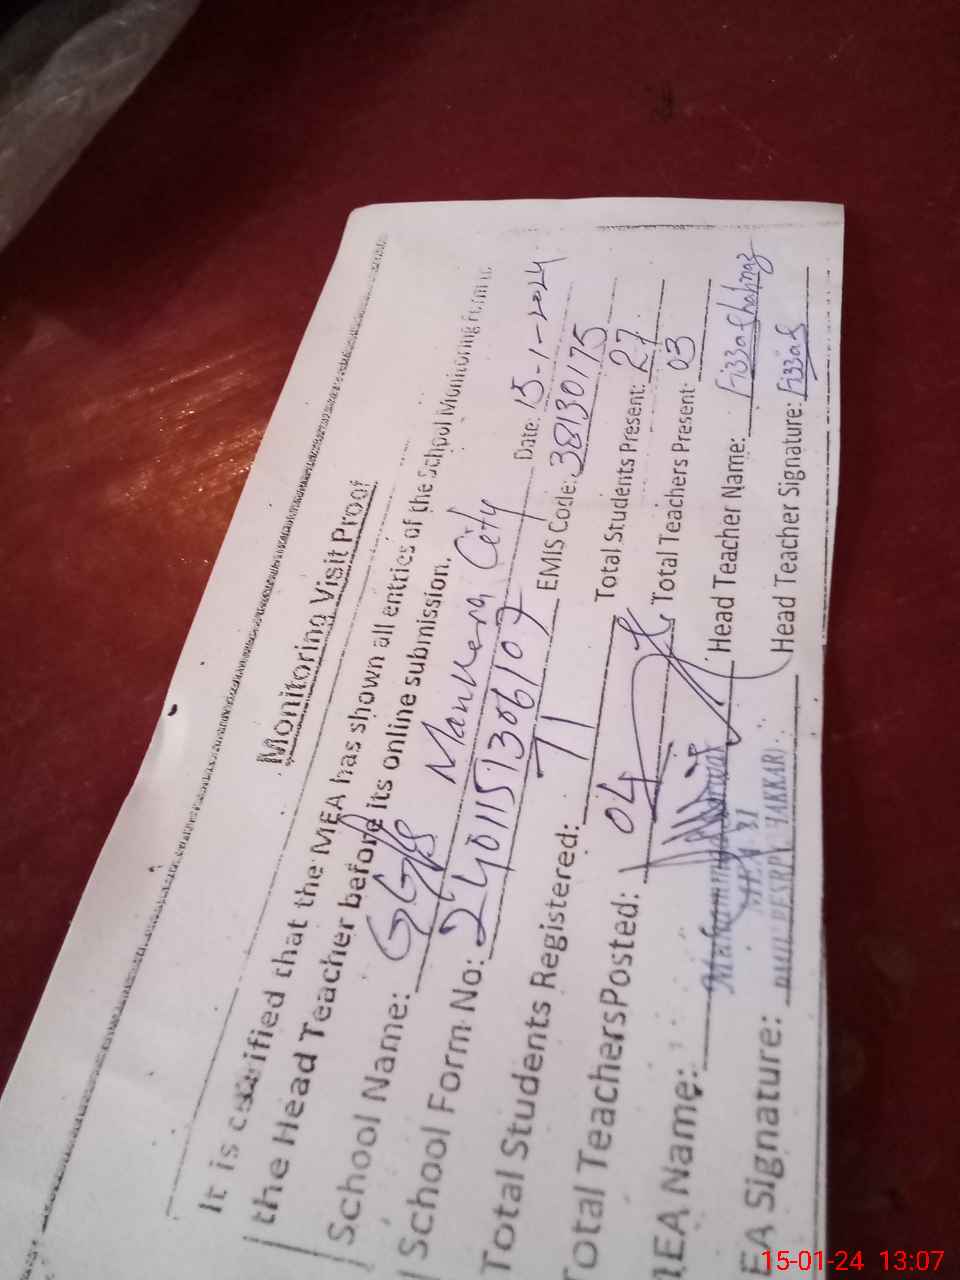 Monitoring Visit Proof
It is certified that the MEA has shown all entries of the School Monitoring Form to
the Head Teacher before its online submission.
School Name: GGPS Mankera City Date: 15-1-2024
School Form No: 2401151306107 EMIS Code: 38130175
Total Students Registered: 71 Total Students Present: 27
Total TeachersPosted: 04 Total Teachers Present: 03
MEA Name: Muhammad Head Teacher Name: Fizza Shahnaz
MEA 31
EA Signature: Head Teacher Signature: Fizza S
15-01-24 13:07